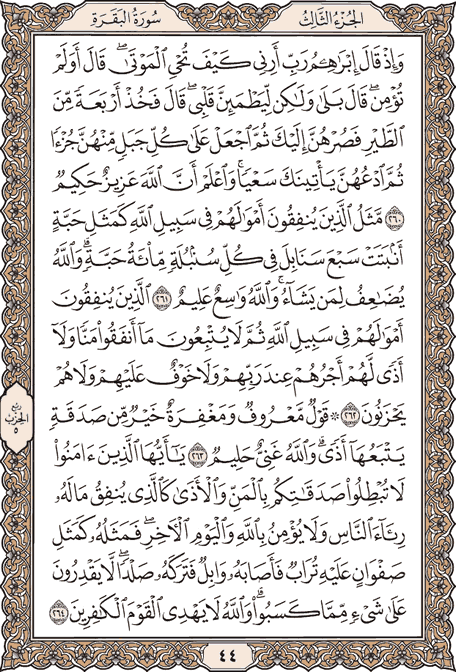 الجزء الثالث
سورة البقرة
وَإِذْ قَالَ إِبْرَٰهِـۧمُ رَبِّ أَرِنِى كَيْفَ تُحْىِ ٱلْمَوْتَىٰ ۖ قَالَ أَوَلَمْ
تُؤْمِن ۖ قَالَ بَلَىٰ وَلَٰكِن لِّيَطْمَئِنَّ قَلْبِى ۖ قَالَ فَخُذْ أَرْبَعَةً مِّنَ
ٱلطَّيْرِ فَصُرْهُنَّ إِلَيْكَ ثُمَّ ٱجْعَلْ عَلَىٰ كُلِّ جَبَلٍ مِّنْهُنَّ جُزْءًا
ثُمَّ ٱدْعُهُنَّ يَأْتِينَكَ سَعْيًا ۚ وَٱعْلَمْ أَنَّ ٱللَّهَ عَزِيزٌ حَكِيمٌ
٢٦٠ مَّثَلُ ٱلَّذِينَ يُنفِقُونَ أَمْوَٰلَهُمْ فِى سَبِيلِ ٱللَّهِ كَمَثَلِ حَبَّةٍ
أَنۢبَتَتْ سَبْعَ سَنَابِلَ فِى كُلِّ سُنۢبُلَةٍ مِّا۟ئَةُ حَبَّةٍ ۗ وَٱللَّهُ
يُضَٰعِفُ لِمَن يَشَآءُ ۗ وَٱللَّهُ وَٰسِعٌ عَلِيمٌ ٢٦١ ٱلَّذِينَ يُنفِقُونَ
أَمْوَٰلَهُمْ فِى سَبِيلِ ٱللَّهِ ثُمَّ لَا يُتْبِعُونَ مَآ أَنفَقُوا۟ مَنًّا وَلَآ
أَذًى ۙ لَّهُمْ أَجْرُهُمْ عِندَ رَبِّهِمْ وَلَا خَوْفٌ عَلَيْهِمْ وَلَا هُمْ
يَحْزَنُونَ ٢٦٢ ۞ قَوْلٌ مَّعْرُوفٌ وَمَغْفِرَةٌ خَيْرٌ مِّن صَدَقَةٍ
يَتْبَعُهَآ أَذًى ۗ وَٱللَّهُ غَنِىٌّ حَلِيمٌ ٢٦٣ يَٰٓأَيُّهَا ٱلَّذِينَ ءَامَنُوا۟
لَا تُبْطِلُوا۟ صَدَقَٰتِكُم بِٱلْمَنِّ وَٱلْأَذَىٰ كَٱلَّذِى يُنفِقُ مَالَهُۥ
رِئَآءَ ٱلنَّاسِ وَلَا يُؤْمِنُ بِٱللَّهِ وَٱلْيَوْمِ ٱلْءَاخِرِ ۖ فَمَثَلُهُۥ كَمَثَلِ
صَفْوَانٍ عَلَيْهِ تُرَابٌ فَأَصَابَهُۥ وَابِلٌ فَتَرَكَهُۥ صَلْدًا ۖ لَّا يَقْدِرُونَ
عَلَىٰ شَىْءٍ مِّمَّا كَسَبُوا۟ ۗ وَٱللَّهُ لَا يَهْدِى ٱلْقَوْمَ ٱلْكَٰفِرِينَ ٢٦٤
ربع
الحزب
٥
٤٤